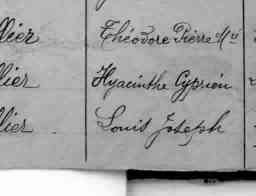 llier Théodore Pierre M
llier Hyacinthe Cyprien
llier Louis Joseph